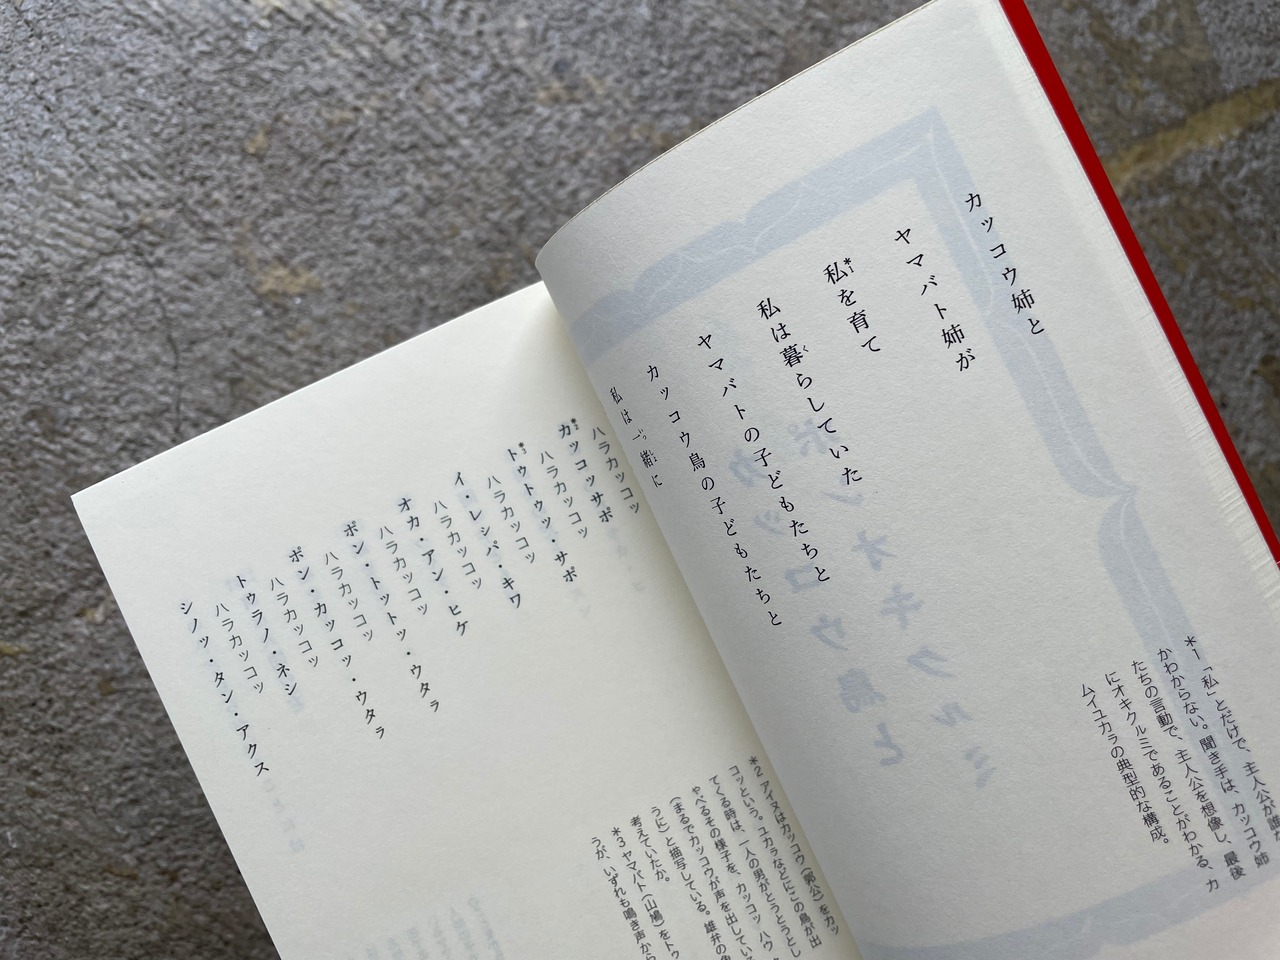 カッコウ姉と
ヤマバト姉が
私*1を育て
私は暮くらしていた
ヤマバトの子どもたちと
カッコウ鳥の子どもたちと
私は一緒いっしょに
*1 「私」とだけで、主人公が誰だ
かわからない。聞き手は、カッコウ姉
たちの言動で、主人公を想像し、最後
にオキクルミであることがわかる、カ
ムイユカラの典型的な構成。
ハラカッコッ
*2カッコッサポ
ハラカッコッ
*3トゥトゥッ・サポ
ハラカッコッ
イ・レシパ・キワ
ハラカッコッ
オカ・アン・ヒケ
ハラカッコッ
ポン・トットッ・ウタラ
ハラカッコッ
ポン・カッコッ・ウタラ
ハラカッコッ
トゥラノ・ネシ
ハラカッコッ
シノッ・タン・アクス
*2 アイヌはカッコウ(郭公)をカッ
コッという。ユカラなどにこの鳥が出
てくる時は、一人の男がとうとうとし
ゃべるその様子を、カッコッ ハウ
(まるでカッコウが声を出してい
うに)と描写している。雄弁の
考えていたか。
*3 ヤマバト(山鳩)をトゥ
うが、いずれも鳴き声から